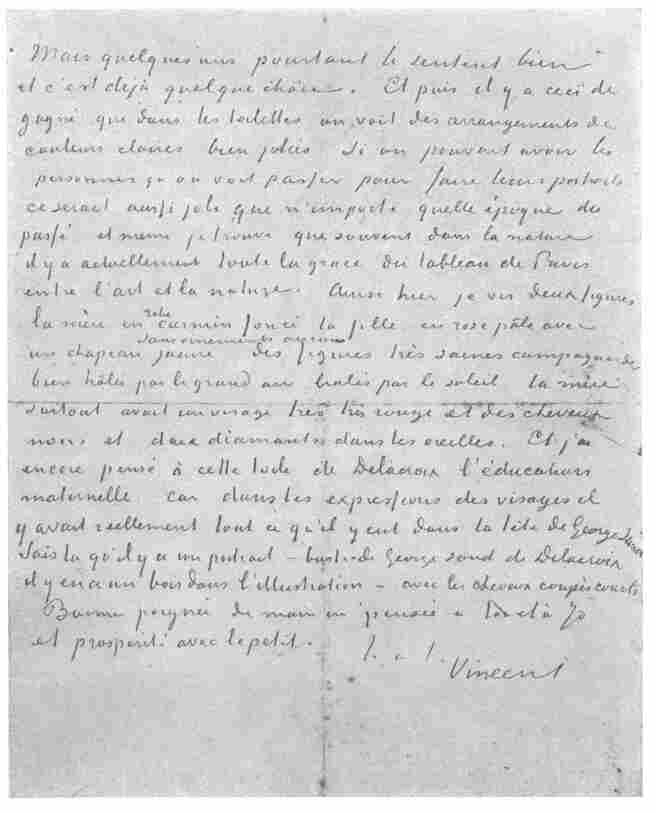 Mais quelques uns pourtant le sentent bien
et c'est déjà quelque chôse. Et puis il y a ceci de
gagné que dans les toilettes on voit des arrangements de
couleurs claires bien jolies si on pouvait avoir les
personnes qu on voit passer pour faire leurs portraits
ce serait aussi joli que n'importe quelle époque du
passé et meme je trouve que souvent dans la nature
il y a actuellement toute la grace du tableau de Puvis
entre l'art et la nature. Ainsi hier je vis deux figures
robe
la mère en carmin foncé la fille en rose pâle avec
sans ornements aucuns
un chapeau jaune des figures très saines campagnardes
bien hâlés par le grand air brulés par le soleil la mère
surtout avait un visage très très rouge et des cheveux
noirs et deux diamants dans les oreilles. Et j'ai
encore pensé à cette toile de Delacroix l'éducation
maternelle car dans les expressions des visages il
y avait reellement tout ce qu'il y eut dans la tête de George Sand
Sais tu qu'il y a un portrait – buste de George Sand de Delacroix
il y en a un bois dans l'illustration – avec les cheveux coupés courts
Bonne poignée de main en pensée à toi et à Jo
et prosperité avec le petit.
t. à t.
Vincent